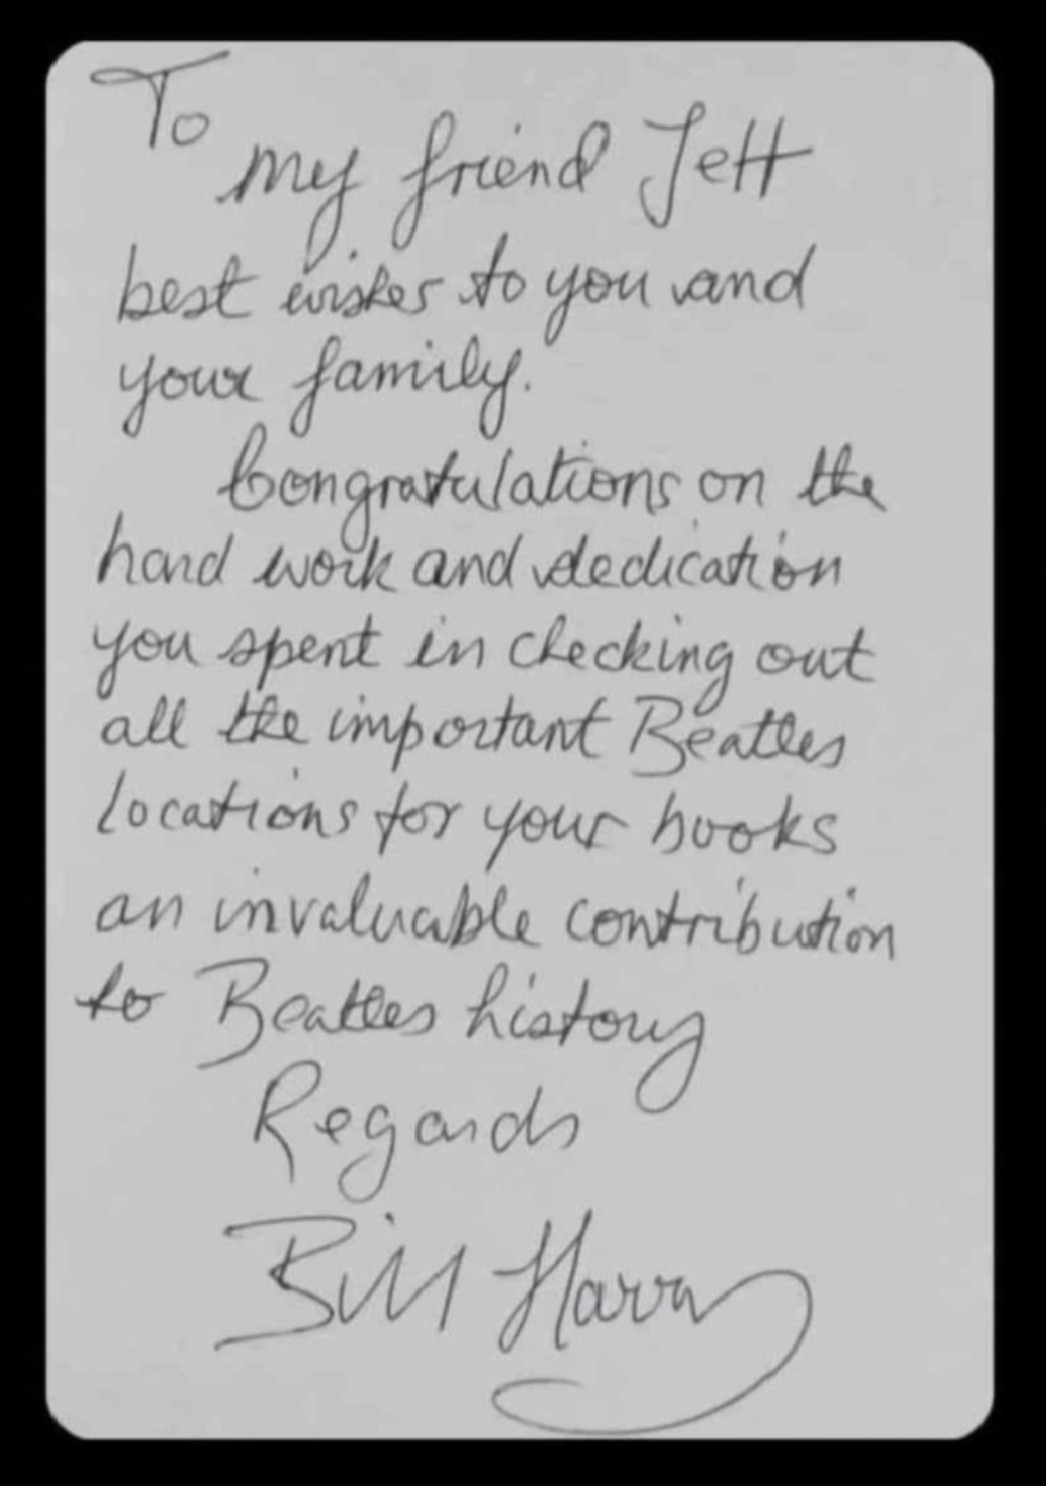 To
my friend Jett
best wishes to you and
your family.
Congratulations on the
hard work and dedication
you spent in checking out
all the important Beatles
locations for your books
an invaluable contribution
to Beatles history
Regards
Bill Harry